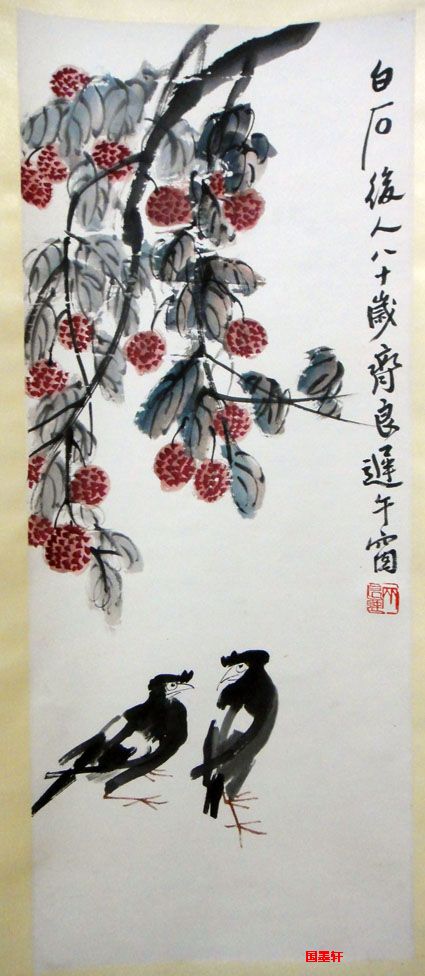 白石後人八十歲齊良遲午窗
国墨轩